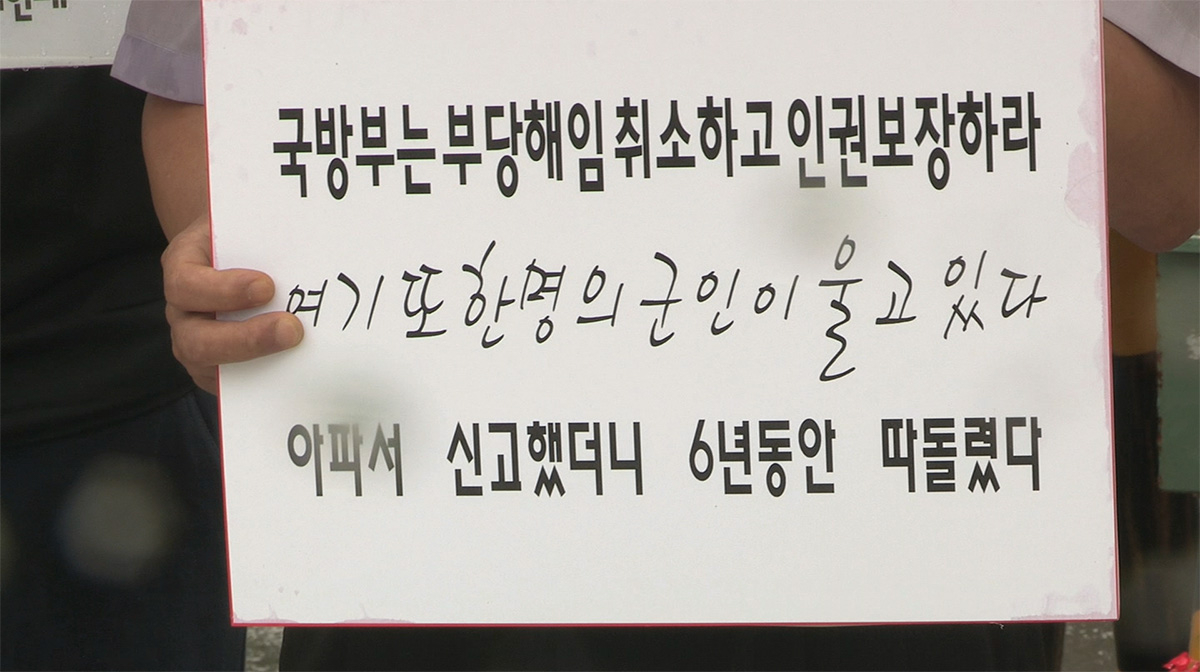 국방부는 부당해임 취소하고 인권보장하라
여기 또 한명의 군인이 울고 있다
아파서 신고했더니 6년동안 따돌렸다